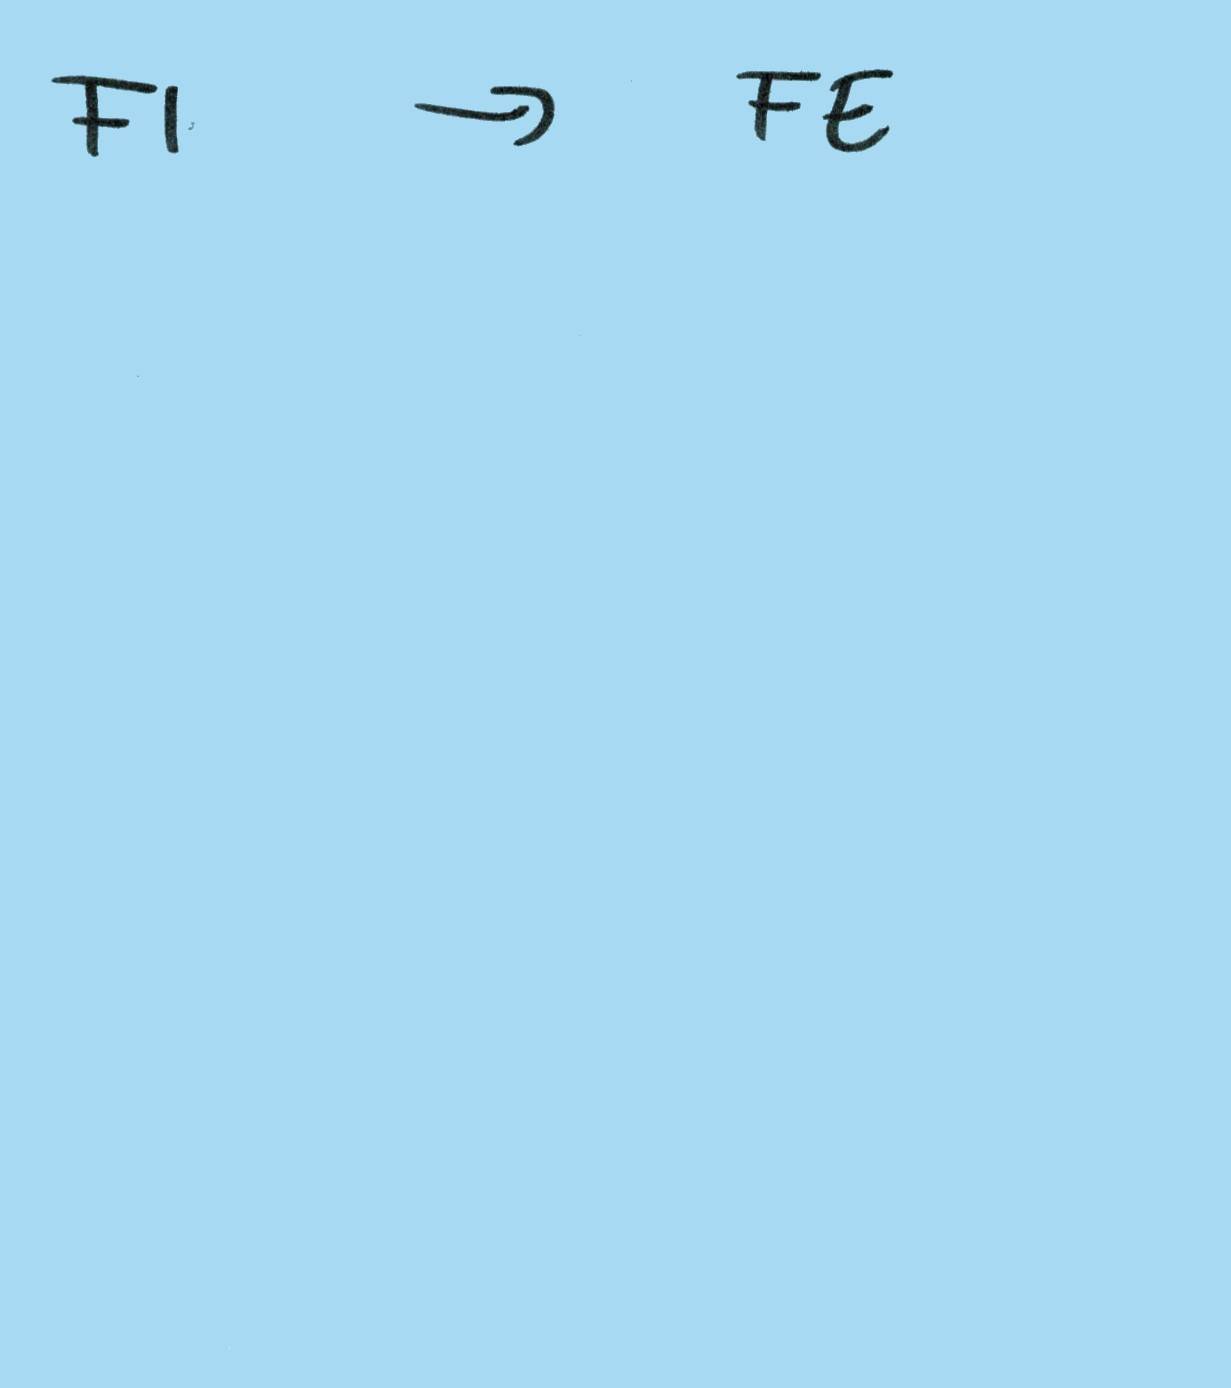 FI → FE